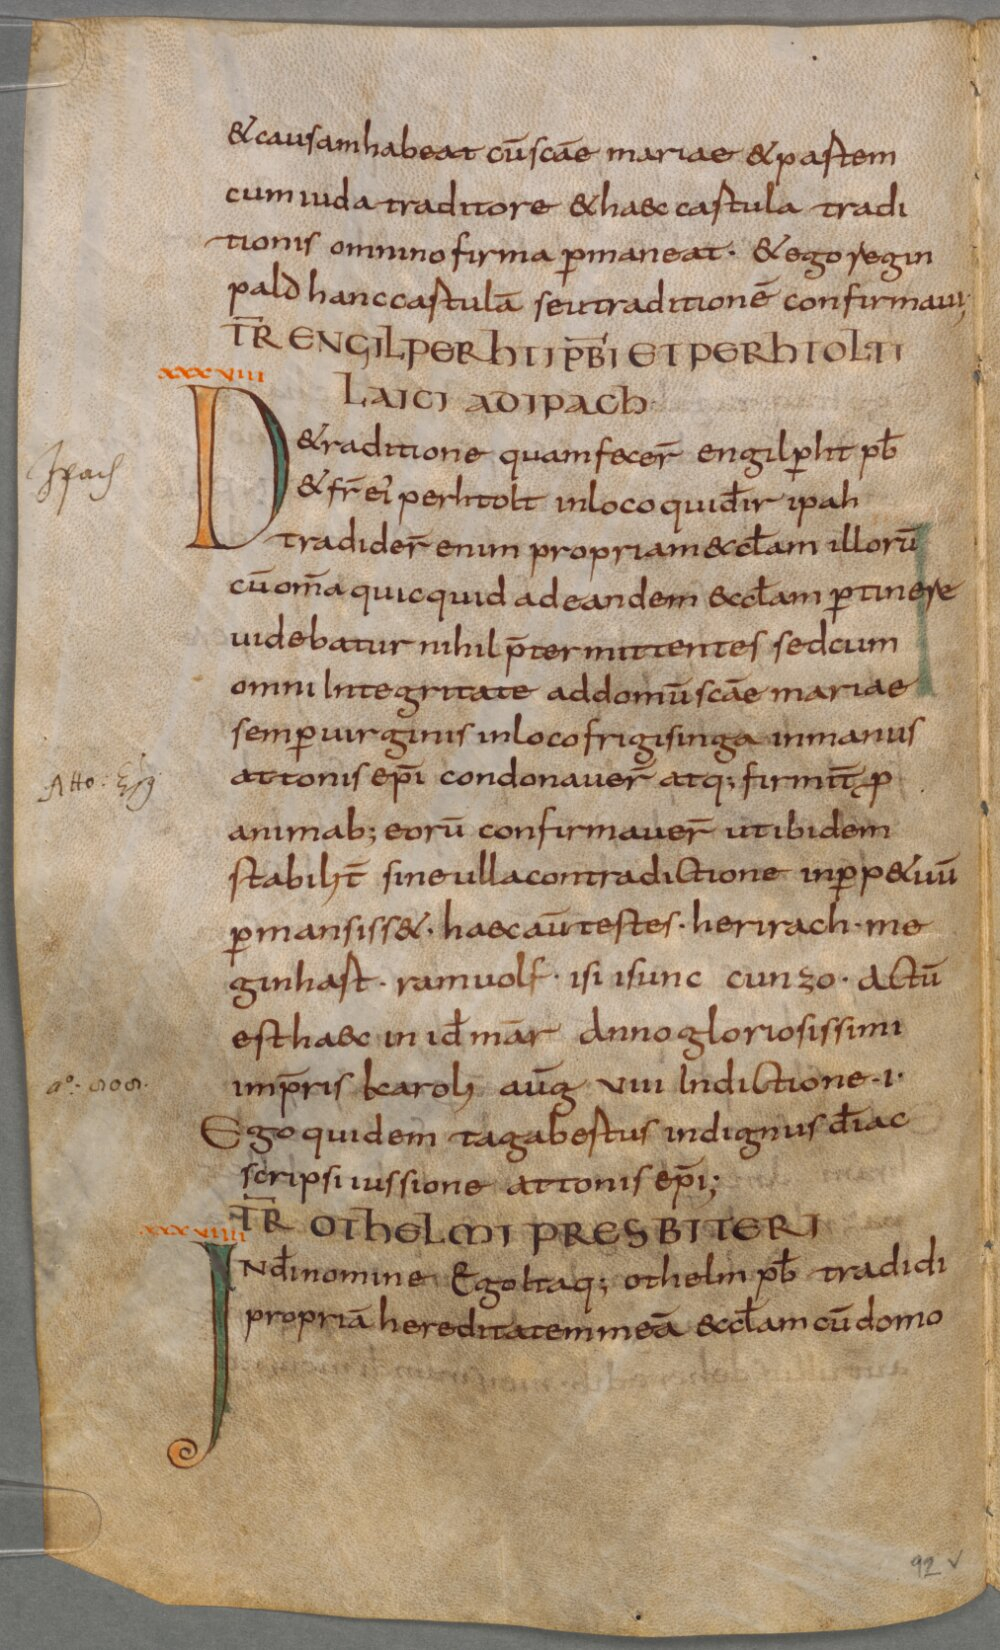 & causam habeat cū scāe mariae & pastem
cum iuda traditore & haec castula tradi
tionis omnino firma p̄maneat · & ego regin
pald hanc castulā seu traditionē confirmavi;
T̄R ENGILPERHTI P̄B̄I ET PERHTOLTI
xxxviii
LAICI AD IPACH·
D& traditione quam fecer̄ engilp̄ht pb̄
Ipach
& fr̄ eī perhtolt in loco qui dr̄ ipah
tradider̄ enim propriam &ccl̄am illorū
cū om̄a quicquid ad eandem &ccl̄am p̄tinere
uidebatur nihil p̄termittentes sed cum
omni Integritate ad domū scāe mariae
semp̄ uirginis in loco frigisinga in manus
Atto: Ep̄g
attonis ep̄i condonauer̄ atq; firmit̄ p̱
animab; eorū confirmauer̄ ut ibidem
stabilit̄ sine ulla contradictione in p̄p&uū
p̄mansiss& · haec aū testes · herirach · me
ginhast · ramuolf · isi isunc cunzo · actū
est haec in id̄ mār Anno gloriosissimi
aº· 808·
imp̄ris karoli aūg viii Indictione · i ·
Ego quidem tagabestus indignus d̄iac
scripsi iussione attonis ep̄i;
T̄R OTHELMI PRESBITERI
xxxviiii
IN dī nomine Ego Itaq; othelm pb̄ tradidi
propriā hereditatem meā &ccl̄am cū domo
92 v